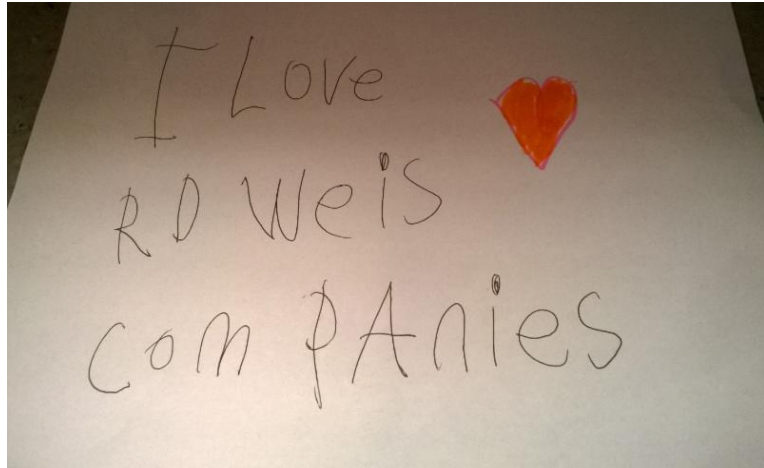 I Love
RD Weis
ComPAnies